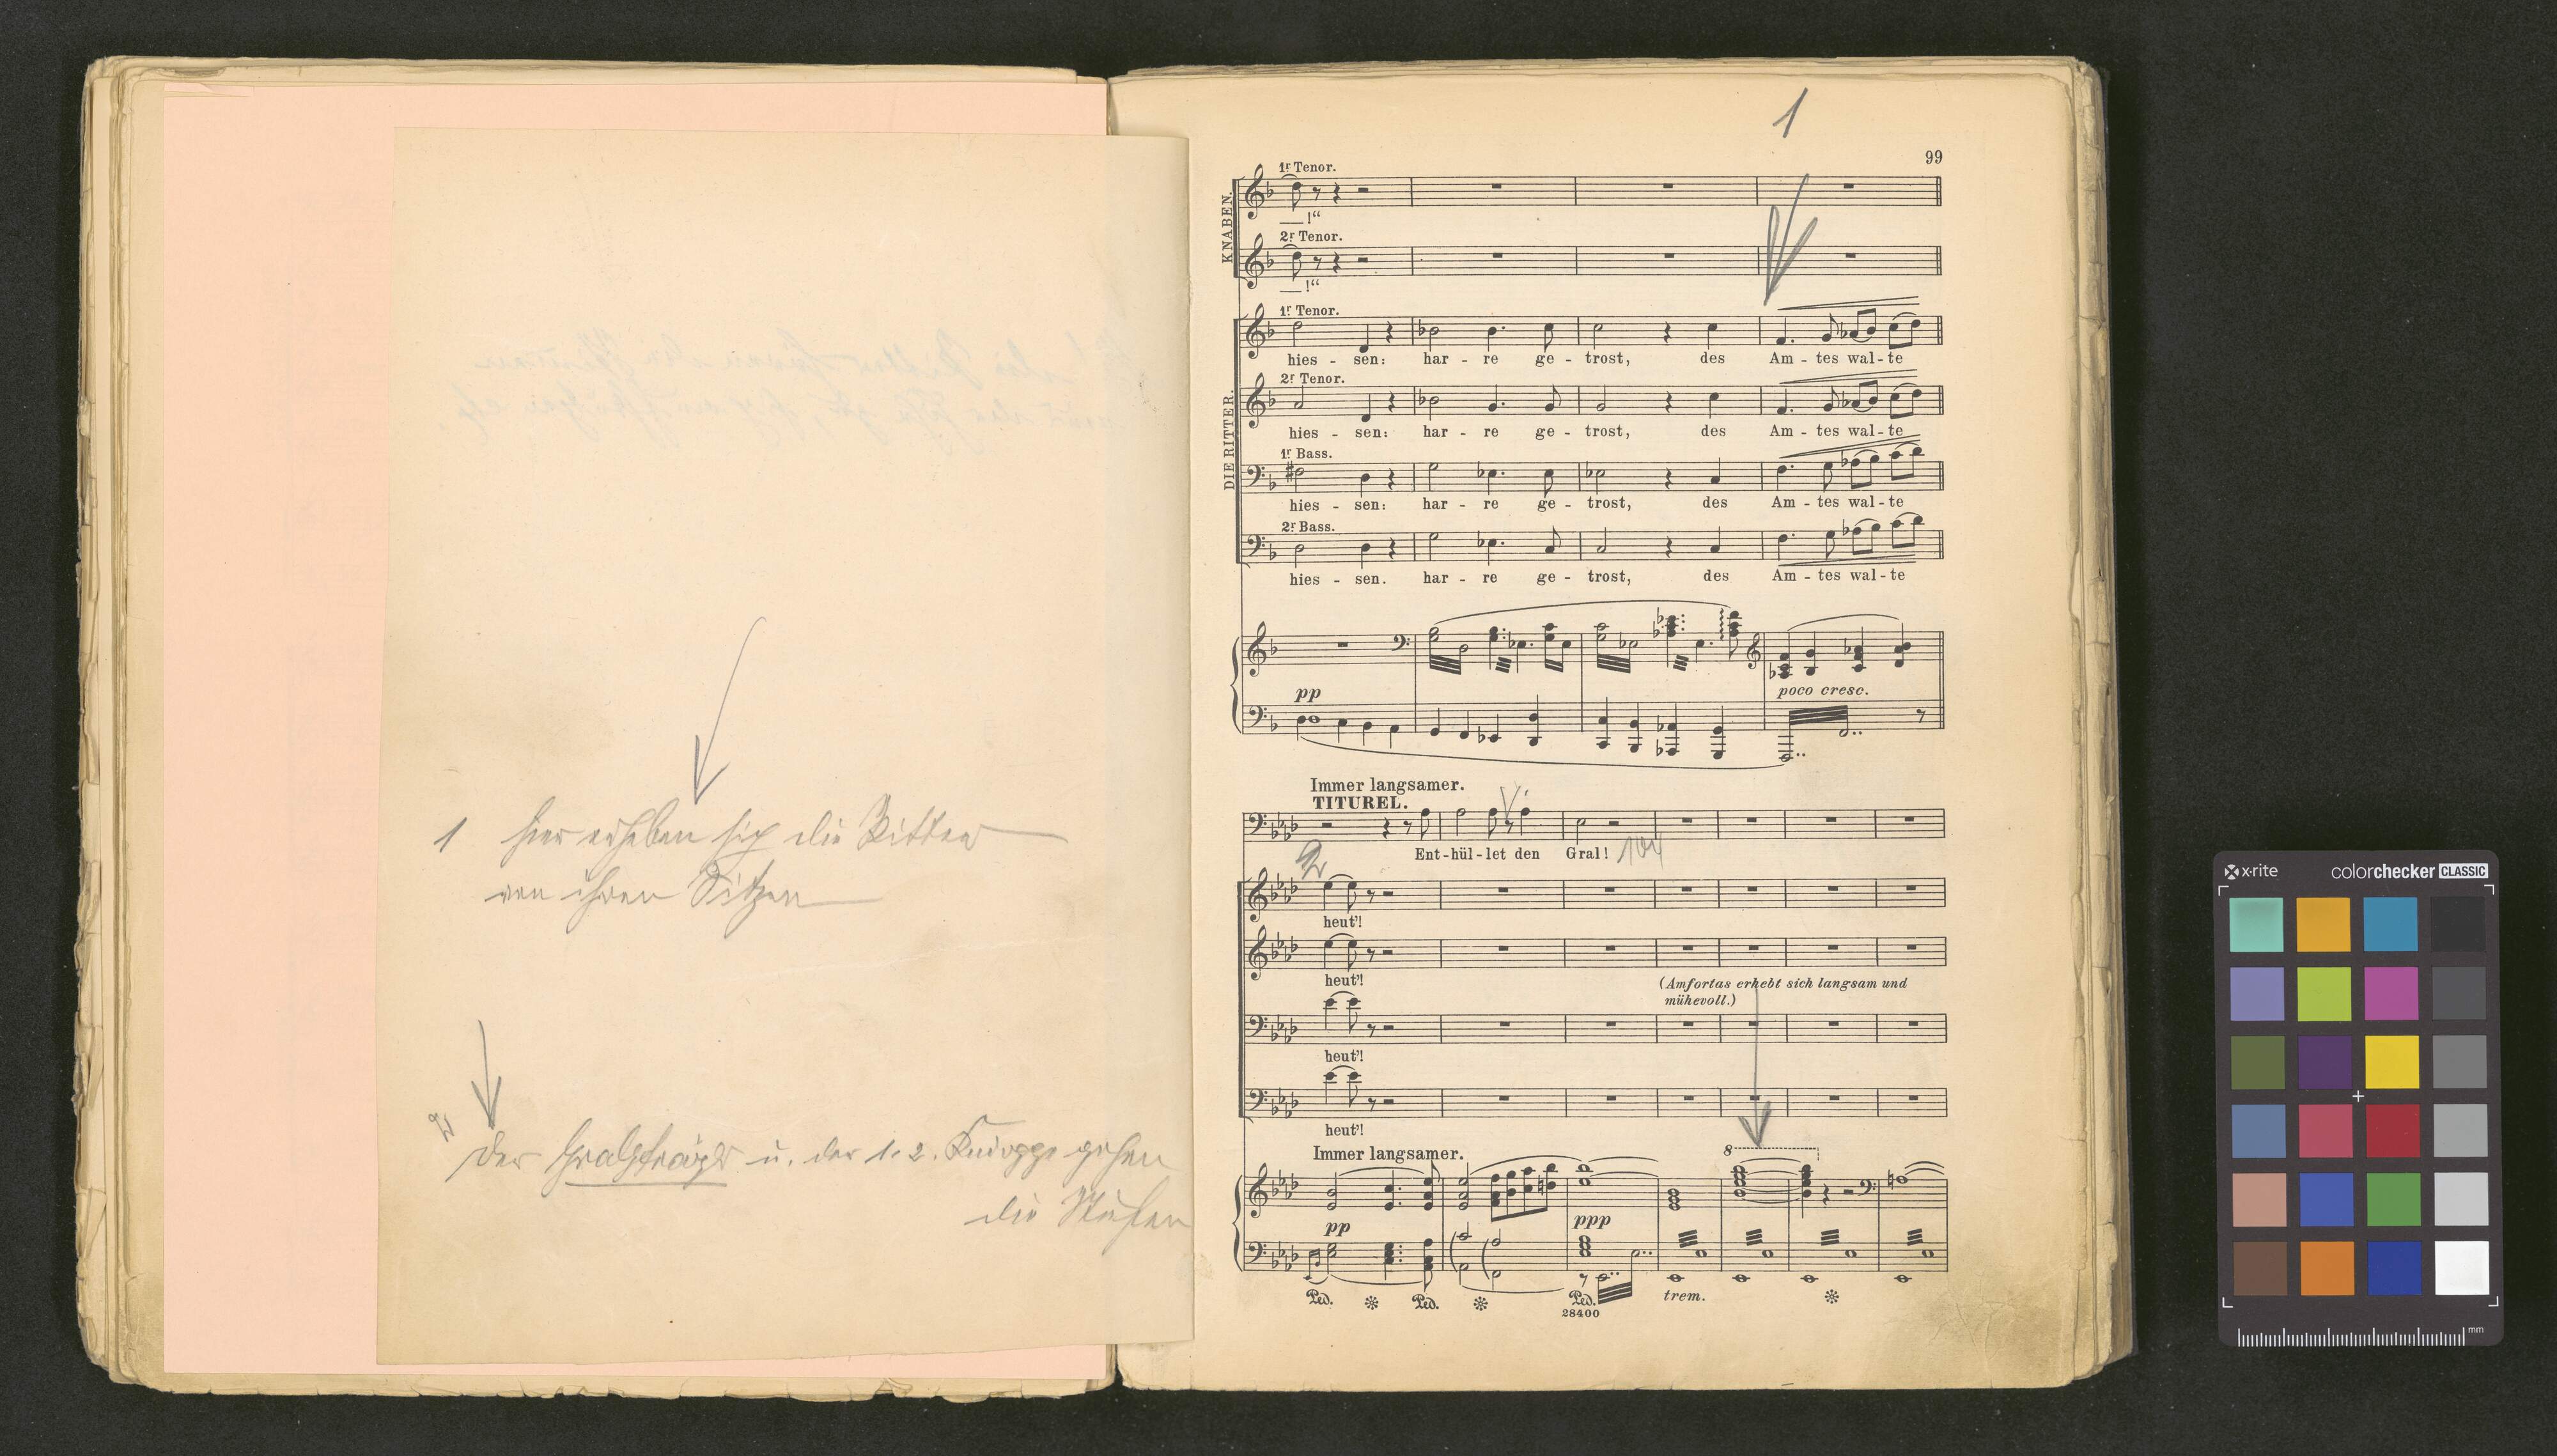 1 hier erheben sich die Ritter
von ihren Sitzen
2
der Gralsträger u. der 1. 2. Knappe gehen
die Stufen
1
99
KNABEN.
1r Tenor.
—!“
2r Tenor.
—!“
DIE RITTER.
1r Tenor.
hies - sen: har - re ge - trost, des Am - tes wal - te
2r Tenor.
hies - sen: har - re ge - trost, des Am - tes wal - te
1r Bass.
hies - sen: har - re ge - trost, des Am - tes wal - te
2r Bass.
hies - sen. har - re ge - trost, des Am - tes wal - te
pp poco cresc.
Immer langsamer.
TITUREL.
Ent - hül - let den Gral! 104
2
heut’!
heut’!
(Amfortas erhebt sich langsam und
mühevoll.)
heut’!
heut’!
Immer langsamer.
8
pp ppp
Ped. Ped. Ped. trem.
28400
x-rite colorchecker CLASSIC
mm